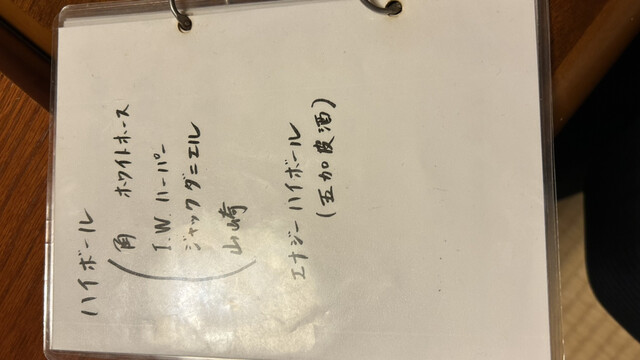 ハイボール
(角 ホワイトホース
I.W.ハーパー
ジャックダニエル
山崎)
エナジーハイボール
(五加皮酒)